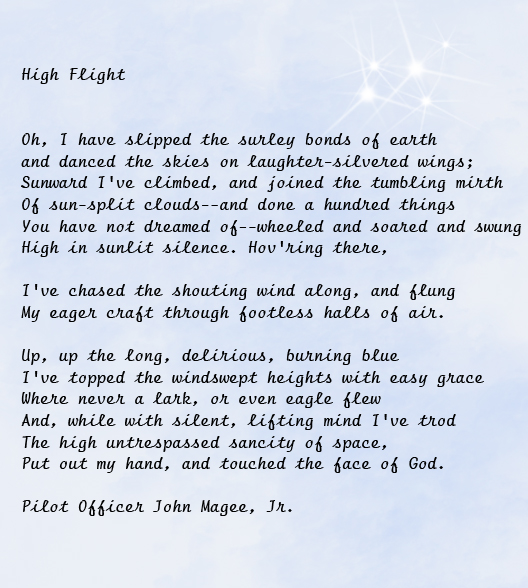 High Flight
Oh, I have slipped the surley bonds of earth
and danced the skies on laughter-silvered wings;
Sunward I've climbed, and joined the tumbling mirth
Of sun-split clouds--and done a hundred things
You have not dreamed of--wheeled and soared and swung
High in sunlit silence. Hov'ring there,
I've chased the shouting wind along, and flung
My eager craft through footless halls of air.
Up, up the long, delirious, burning blue
I've topped the windswept heights with easy grace
Where never a lark, or even eagle flew
And, while with silent, lifting mind I've trod
The high untrespassed sancity of space,
Put out my hand, and touched the face of God.
Pilot Officer John Magee, Jr.